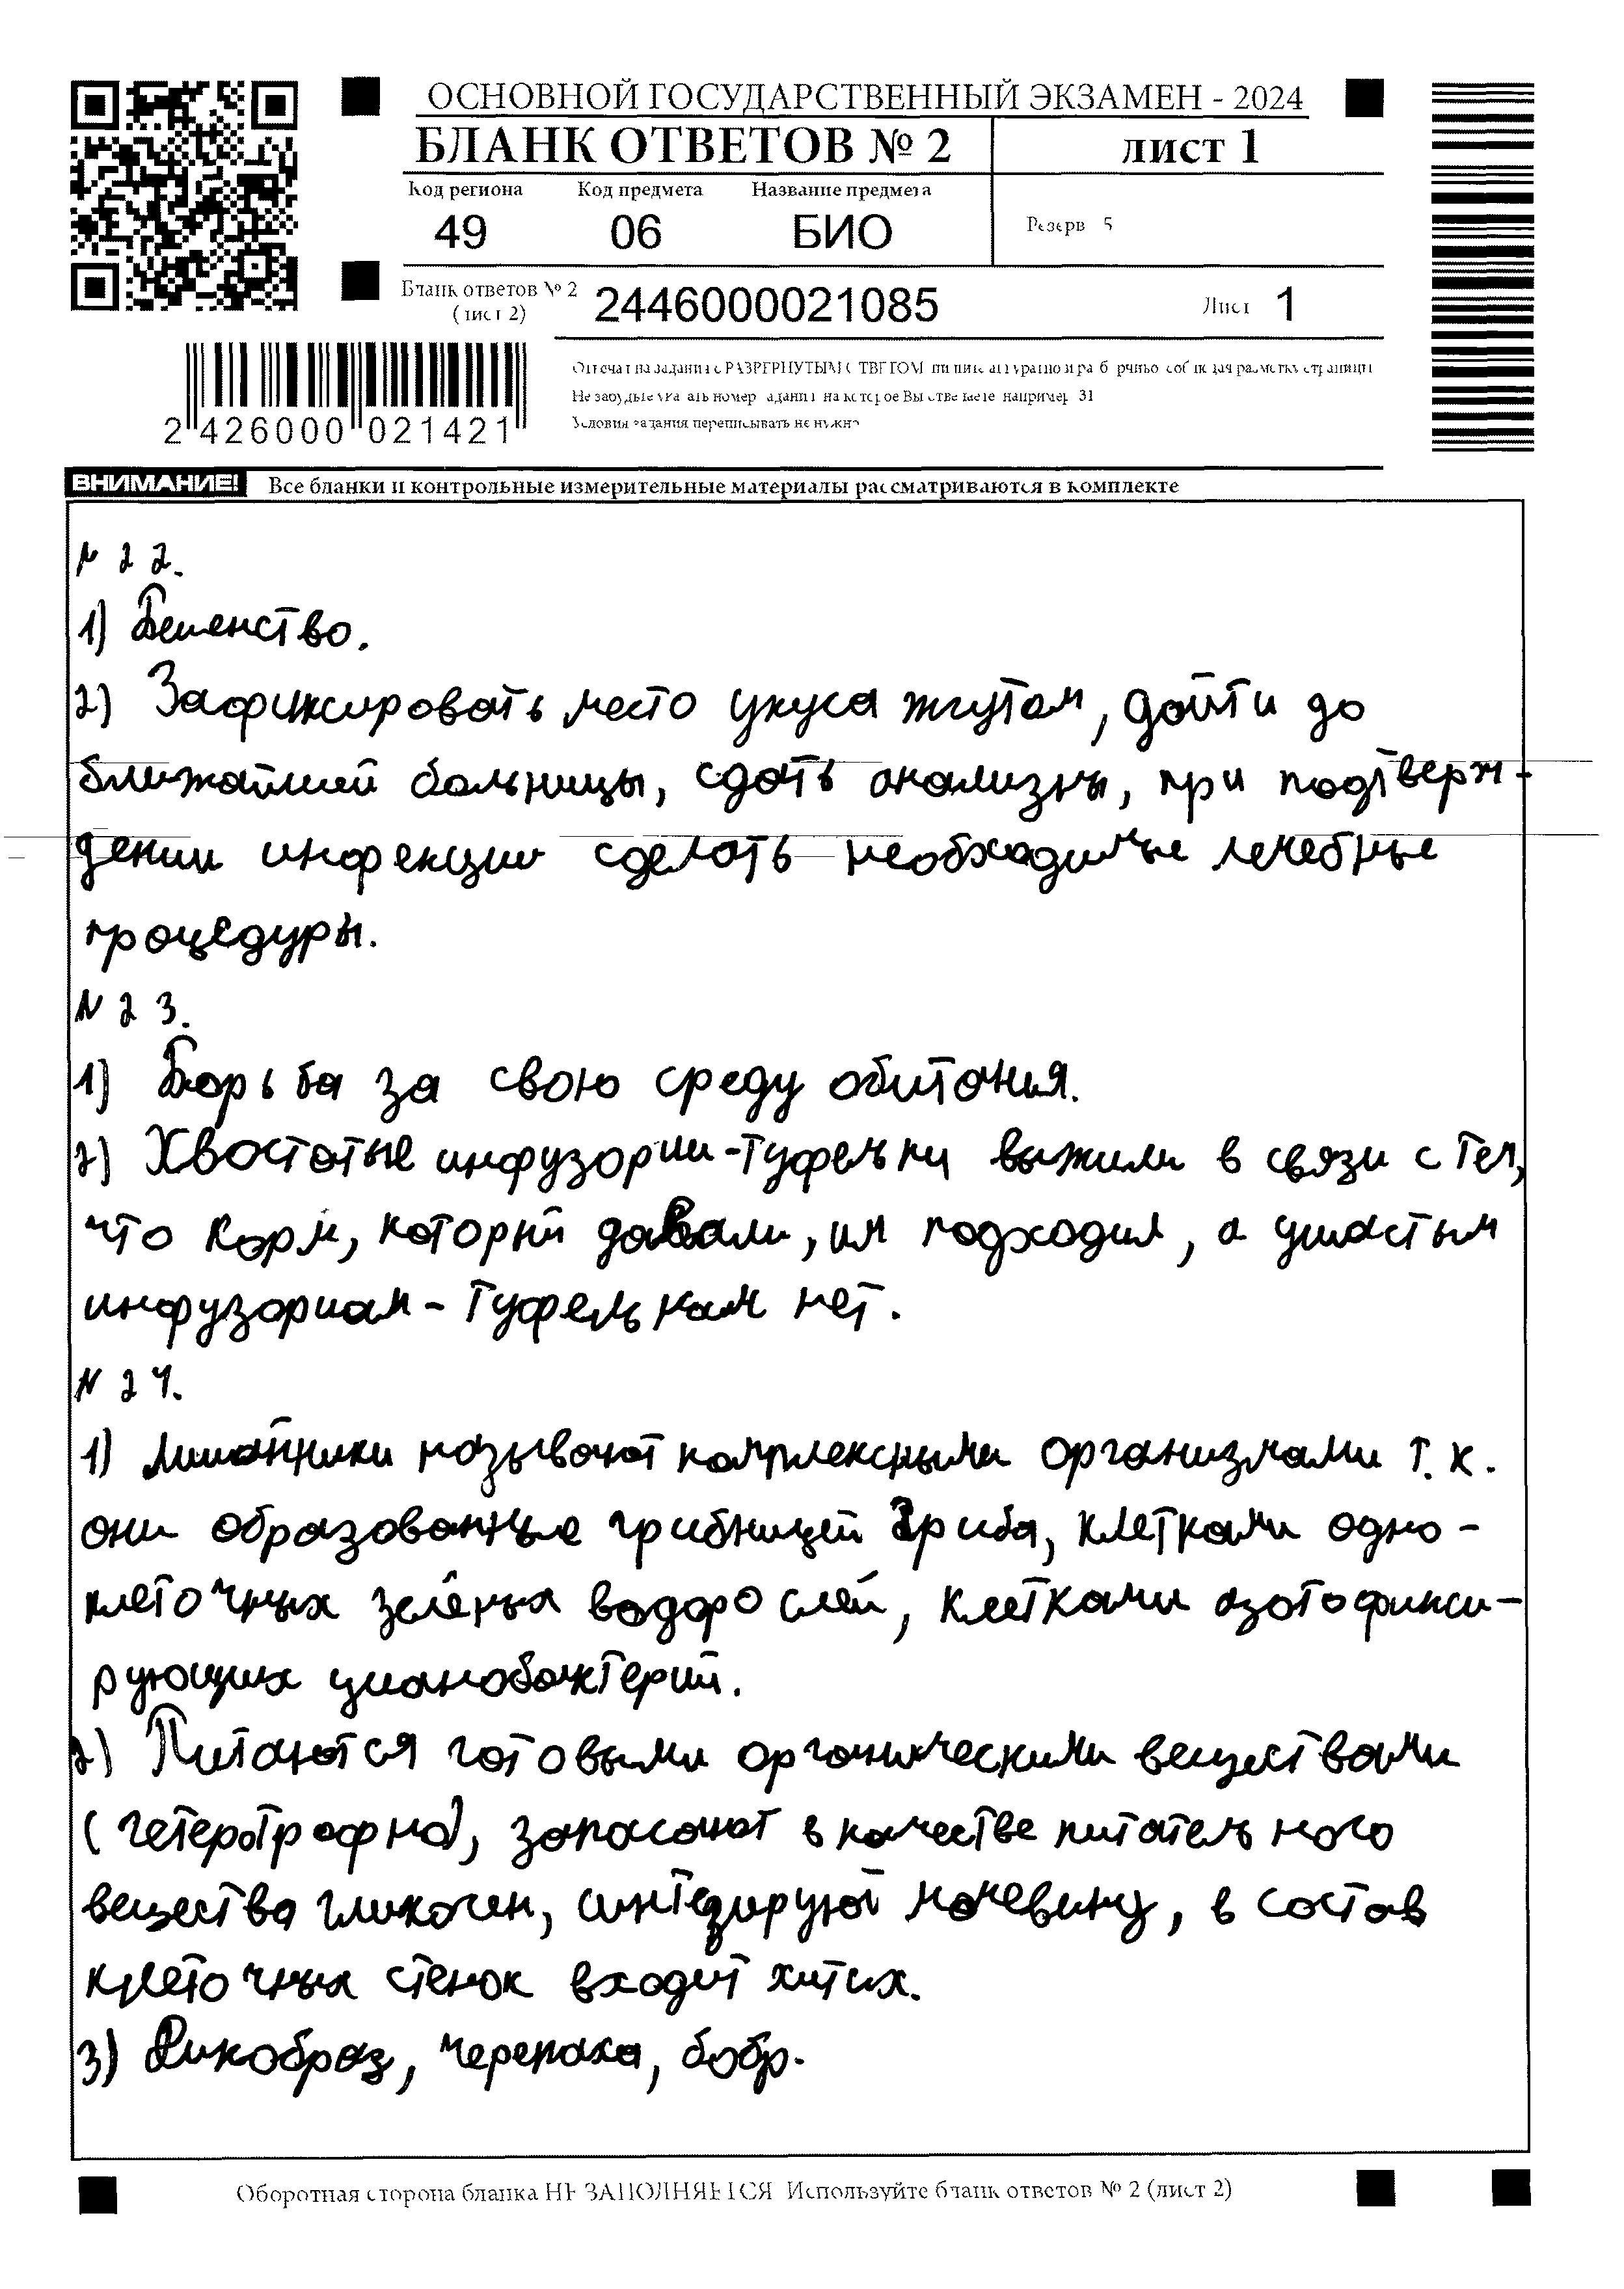 ОСНОВНОЙ ГОСУДАРСТВЕННЫЙ ЭКЗАМЕН - 2024
БЛАНК ОТВЕТОВ № 2
лист 1
Код региона Код предмета Название предмета
49 06 БИО
Резерв 5
Бланк ответов № 2
(лист 2)
2446000021085
Лист 1
2 426000 021421
Отвечая на задания с РАЗВЕРНУТЫМ ОТВЕТОМ, пишите аккуратно и разборчиво, соблюдая разметку страницы
Не забудьте указать номер задания, на которое Вы отвечаете, например, 31
Условия задания переписывать не нужно
ВНИМАНИЕ! Все бланки и контрольные измерительные материалы рассматриваются в комплекте
N 22.
1) Бешенство.
2) Зафиксировать место укуса жгутом, дойти до
ближайшей больницы, сдать анализы, при подтверж-
дении инфекции сделать необходимые лечебные
процедуры.
N 23.
1) Борьба за свою среду обитания.
2) Хвостатые инфузории-туфельки выжили в связи с тем,
что корм, который давали, им подходил, а ушастым
инфузориам-туфелькам нет.
N 24.
1) Лишайники называют комплексными организмами т.к.
они образованные грибницей гриба, клетками одно-
клеточных зелёных водорослей, клетками азотофикси-
рующих цианобактерий.
2) Питаются готовыми органическими веществами
(гетеротрофно), запасают в качестве питательного
вещества гликоген, синтезируют мочевину, в состав
клеточных стенок входит хитин.
3) Дикобраз, черепаха, бобр.
Оборотная сторона бланка НЕ ЗАПОЛНЯЕТСЯ Используйте бланк ответов № 2 (лист 2)